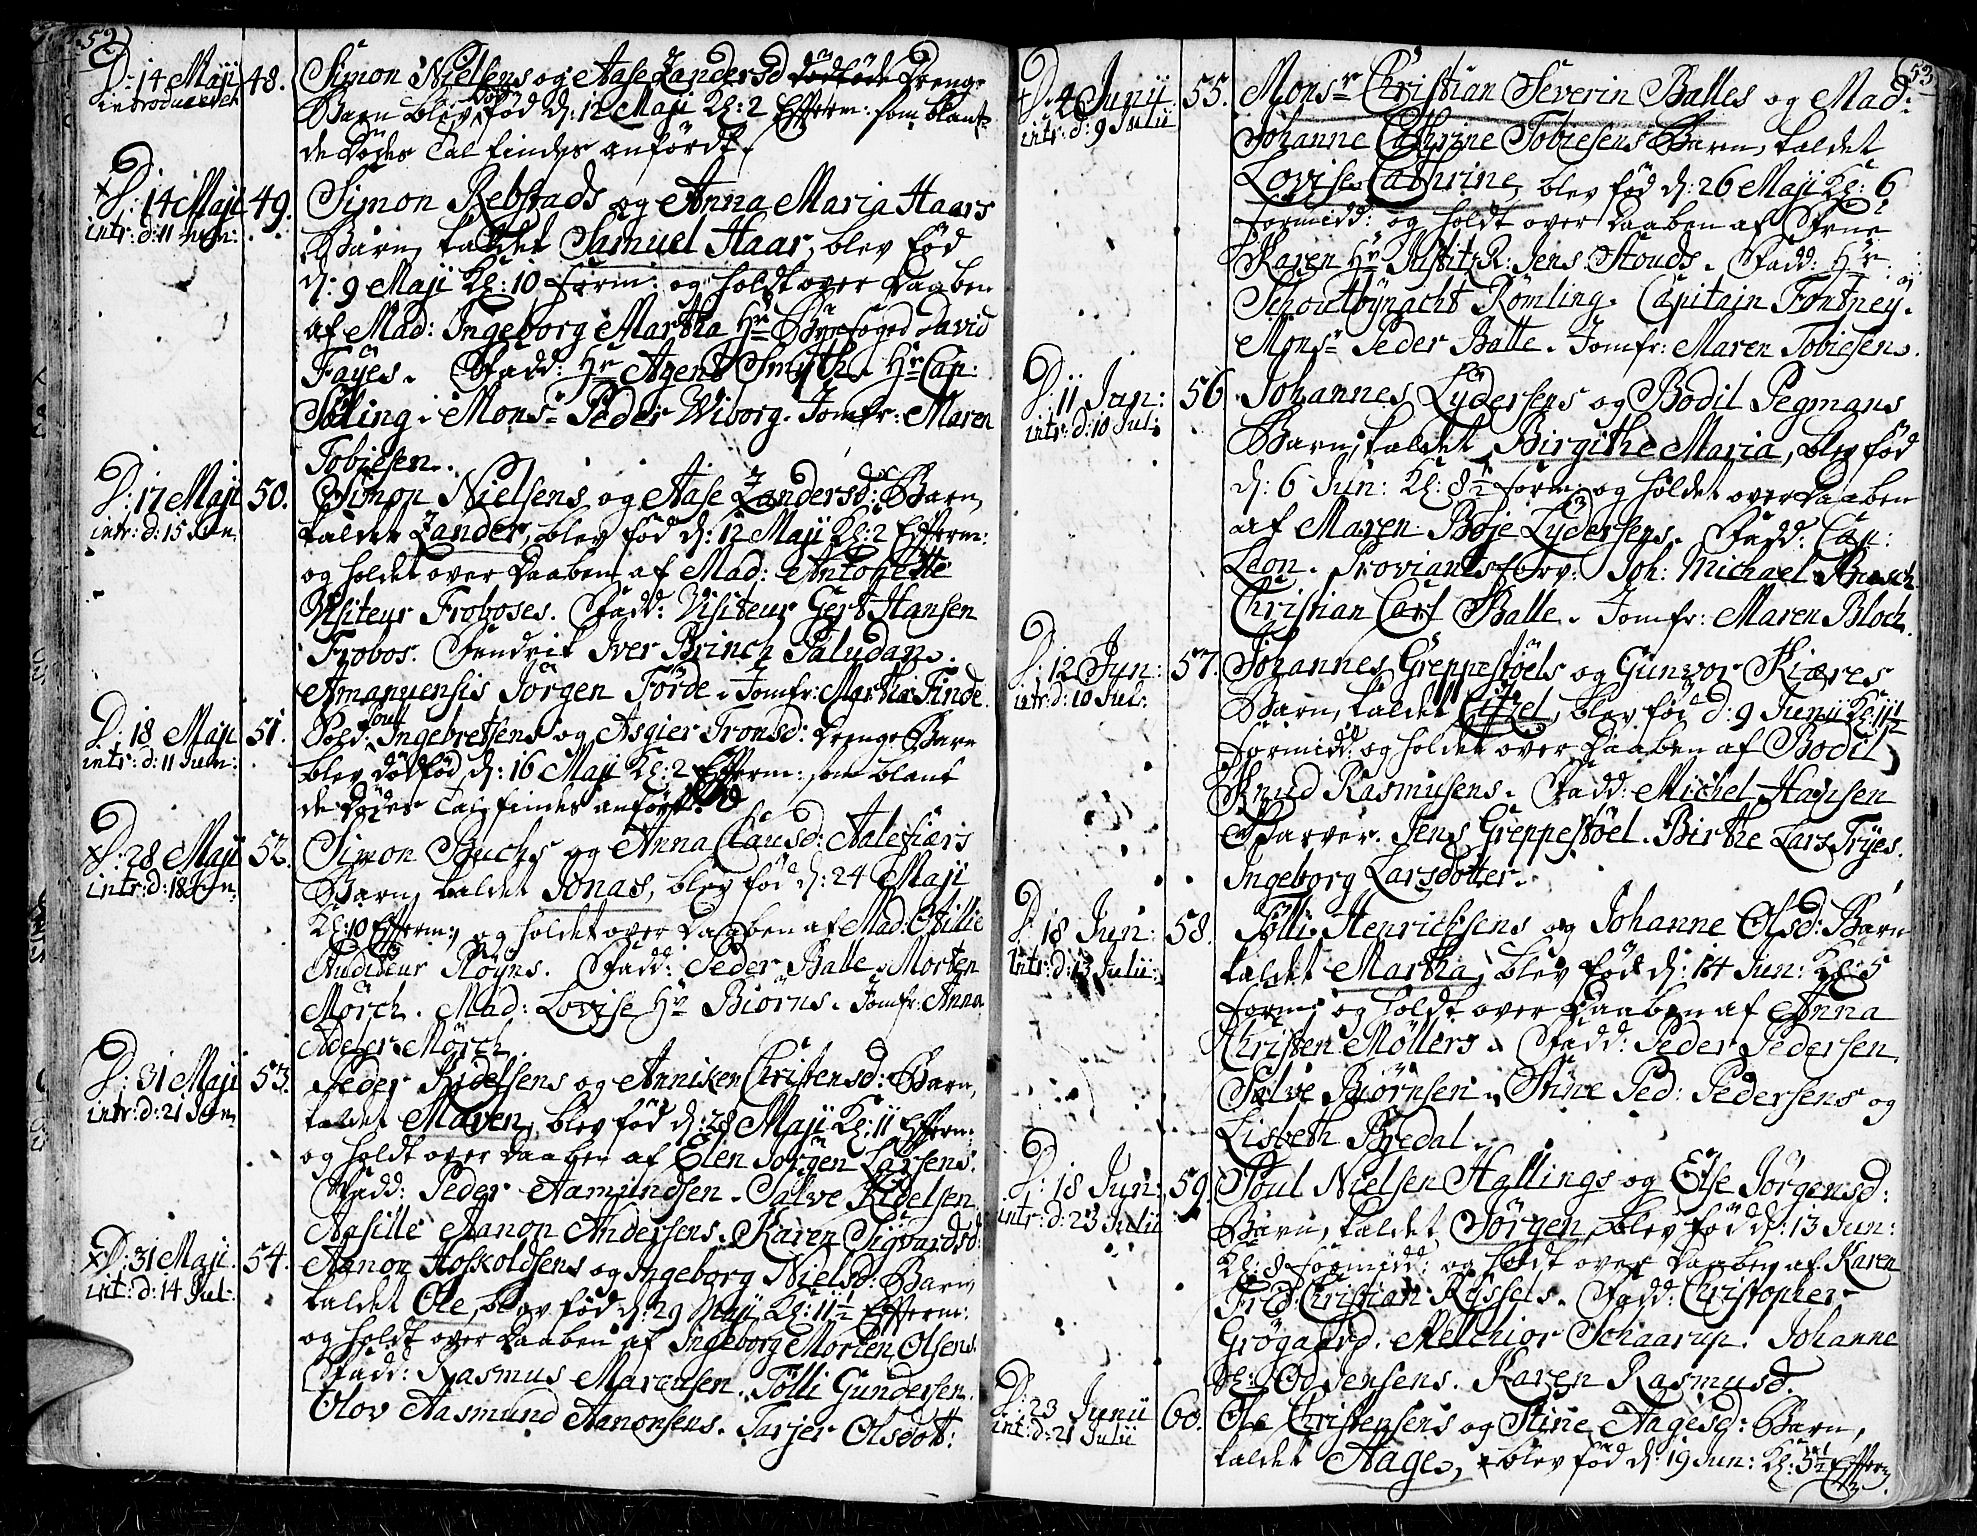 52
D: 14 Maji 48. Simon Nielsens og Aase Zandersd dødføde Drenge
introduceret Barn blev død fød d: 12 Maji Kl: 2 Efterm: som blant
de Dødes Tal findes anført.
D: 14 Maji 49. Simon Rebstads og Anna Maria Haars
intr: d: 11 Jun: Barn, kaldet Samuel Haar, blev fød
d: 9 Maji Kl: 10 form: og holdt over Daaben
af Mad: Ingeborg Martha Hr Byefoged David
Fayes. Fadd: Hr Agent Smyth. Hr Cap:
Søling. Monsr Peder Wiborg. Jomfr: Maren
Tobiesen.
D: 17 Maji 50. Simon Nielsens og Aase Zandersd: Barn,
intr: d: 15 Jun kaldet Zander, blev fød d: 12 Maji Kl: 2 Efterm:
og holdet over Daaben af Mad: Antonette
Visiteur Froboses. Fadd: Visiteur Gert Hansen
Frobos. Fendrik Iver Brinch Paludan.
Amanuensis Jørgen Förde. Jomfr: Martha Finde.
D: 18 Maji 51. Poul Ingebretsens og Asgier Tronsd: Drenge Barn
intr: d: 11 Jun: blev dødfød d: 16 Maji Kl: 2 Efterm: som blant
de Dødes Tal findes anført.
D: 28 Maji 52. Simon Buchs og Anna Clausd: Aalefiærs
intr: d: 18 Jun: Barn, kaldet Jonas, blev fød d: 24 Maji
Kl: 10 Efterm: og holdet over Daaben af Mad: Otilie
Auditeur Röyns. Fadd: Peder Balle. Morten
Mörch. Mad: Lovise Hr Biørns. Jomfr: Anna
Adeler Mörch.
D: 31 Maji 53. Peder Kidelsens og Anniken Christensd: Barn,
intr: d: 21 Jun kaldet Maren, blev fød d: 28 Maji Kl: 11 Efterm:
og holdt over Daaben af Elen Jørgen Larsens.
Fadd: Peder Aamundsen. Salve Kidelsen
Aasille Aanon Andersens. Karen Sigvardsd:
D: 31 Maji 54. Aanon Hoskoldsens og Ingeborg Nielsd: Barn,
int: d: 14 Jul: kaldet Ole, blev fød d: 29 Maji Kl: 11½ Efterm:
og holdt over Daaben af Ingeborg Morten Olsens
Fadd: Rasmus Marcusen. Tölli Gundersen.
Olov Aasmund Aanonsens. Tarjer Olsdot:
53
D: 4 Junii 55. Monsr Christian Severin Balles og Mad:
intr: d: 9 Julii Johanne Cathrine Tobiesens Barn, kaldet
Lovise Cathrine, blev fød d: 26 Maji Kl: 6
formidd: og holdt over Daaben af Frue
Karen Hr Justitz R: Jens Stouds. Fadd: Hr
Schoutbynacht Römling. Capitain Fontney.
Monsr Peder Balle. Jomfr: Maren Tobiesens.
D: 11 Jun: 56. Johannes Lydersens og Bodil Pegmans
intr: d: 10 Jul: Barn, kaldet Birgithe Maria, blev fød
d: 6 Jun: Kl: 8½ form: og holdet over Daaben
af Maren Boje Lydersens. Fadd: Cap:
Leon. Proviantforv: Joh: Michael
Christian Carl Balle. Jomfr: Maren Bloch.
D: 12 Jun: 57. Johannes Greppestøels og Gunvor Kiæres
intr: d: 10 Jul: Barn, kaldet Citzel, blev fød d: 9 Junii Kl: 11½
formidd: og holdet over Daaben af Bodil
Knud Rasmusens. Fadd: Michel Hansen
Farver. Jens Greppestøel. Birthe Lars Fryes.
Ingeborg Larsdotter.
D: 18 Jun: 58. Tølli Henrichsens og Johanne Olsd: Barn
intr: d: 13 Julii kaldet Martha, blev fød d: 14 Jun: Kl: 5
form: og holdt over Daaben af Anna
Christen Möllers. Fadd: Peder Pedersen
Salve Biørnsen. Stine Ped: Pedersens og
Lisbeth Bredal.
D: 18 Jun: 59. Poul Nielsen Hallings og Else Jørgensd:
intr: d: 23 Julii Barn, kaldet Jörgen, blev fød d: 13 Jun:
Kl: 8 formidd: og holdt over Daaben af Karen
Fred: Christian Ryssels. Fadd: Christopher
Grøgaard. Melchior Schaarup. Johanne
Jensens. Karen Rasmusd.
D: 23 Junii 60. Ole Christensens og Stine Aagesd: Barn,
int: d: 21 Julii kaldet Aage, blev fød d: 19 Jun: Kl: 5½ Efterm